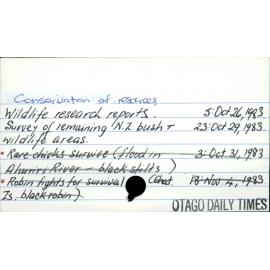 Conservation of resources
Wildlife research reports. 5: Oct 26, 1983
Survey of remaining N.Z. bush + 23: Oct 29, 1983.
wildlife areas.
• Rare chicks survive (flood in 3: Oct 31, 1983
Ahuriri River - black stilts)
• Robin fights for survival (Chat. 18: Nov 4, 1983
Is. black robin)
OTAGO DAILY TIMES